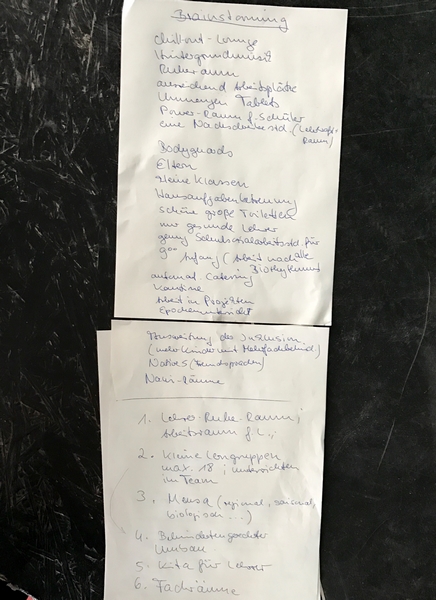 Brainstorming
Chillout-Lounge
Hintergrundmusik
Ruheraum
ausreichend Arbeitsplätze
Unmengen Tablets
Power-Raum f. Schüler
eine Nachdenkerstd. (Lehrkraft +
Raum)
Bodyguards
Eltern
kleine Klassen
Hausaufgabenbetreuung
schöne große Toiletten
nur gesunde Lehrer
genug Schulsozialarbeitsstd. für
alle
9°° Anfang (Arbeit nach
Biorhythmus
automat. Catering
Kantine
Arbeit in Projekten
Epochenunterricht
Ausweitung der Inklusion
(mehr Kinder mit Mehrfachbehind.)
Natives (Fremdsprachen)
Nawi-Räume
1. Lehrer-Ruhe-Raum;
Arbeitsraum f. L.;
2. Kleine Lerngruppen
max. 18; unterrichten
im Team
3. Mensa (regional, saisonal,
biologisch ...)
4. Behindertengerechter
Umbau
5. Kita für Lehrer
6. Fachräume